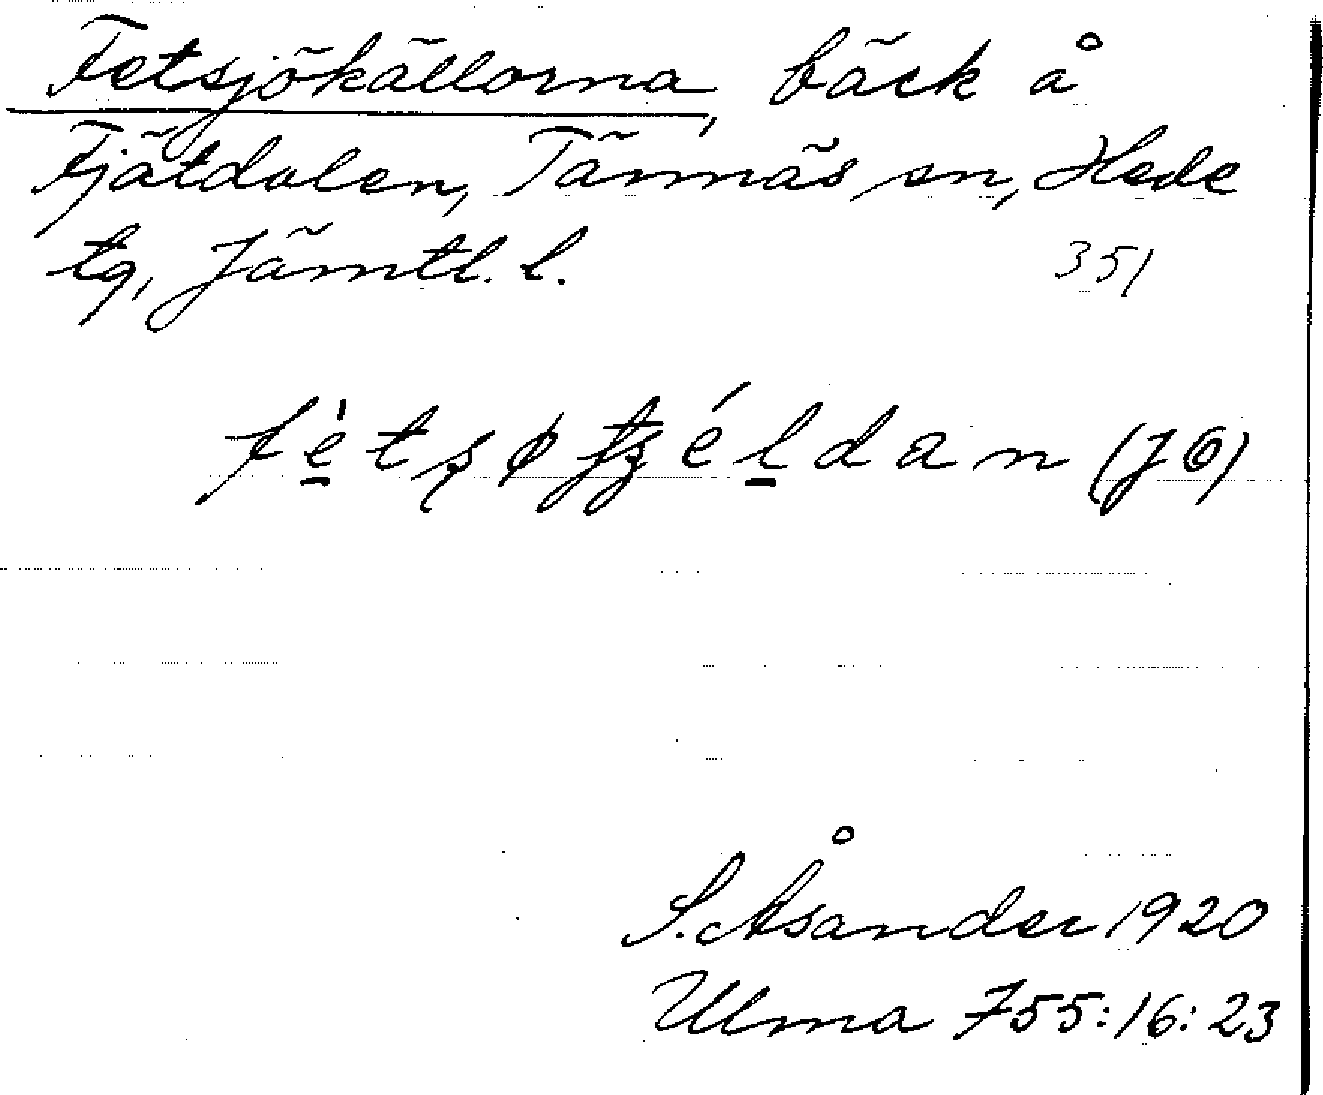 Fetsjökällorna, bäck å
Fjätdalen, Tännäs sn, Hede
tg, Jämtl. l. 351
(JÖ)
S. Åsander 1920
Ulma 755:16:23